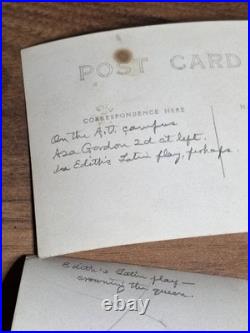 POST CARD
CORRESPONDENCE HERE
On the A.U. campus
Asa Gordon 2d at left.
In Edith's Latin play, perhaps.
Edith's Latin play—
crowning the queen.